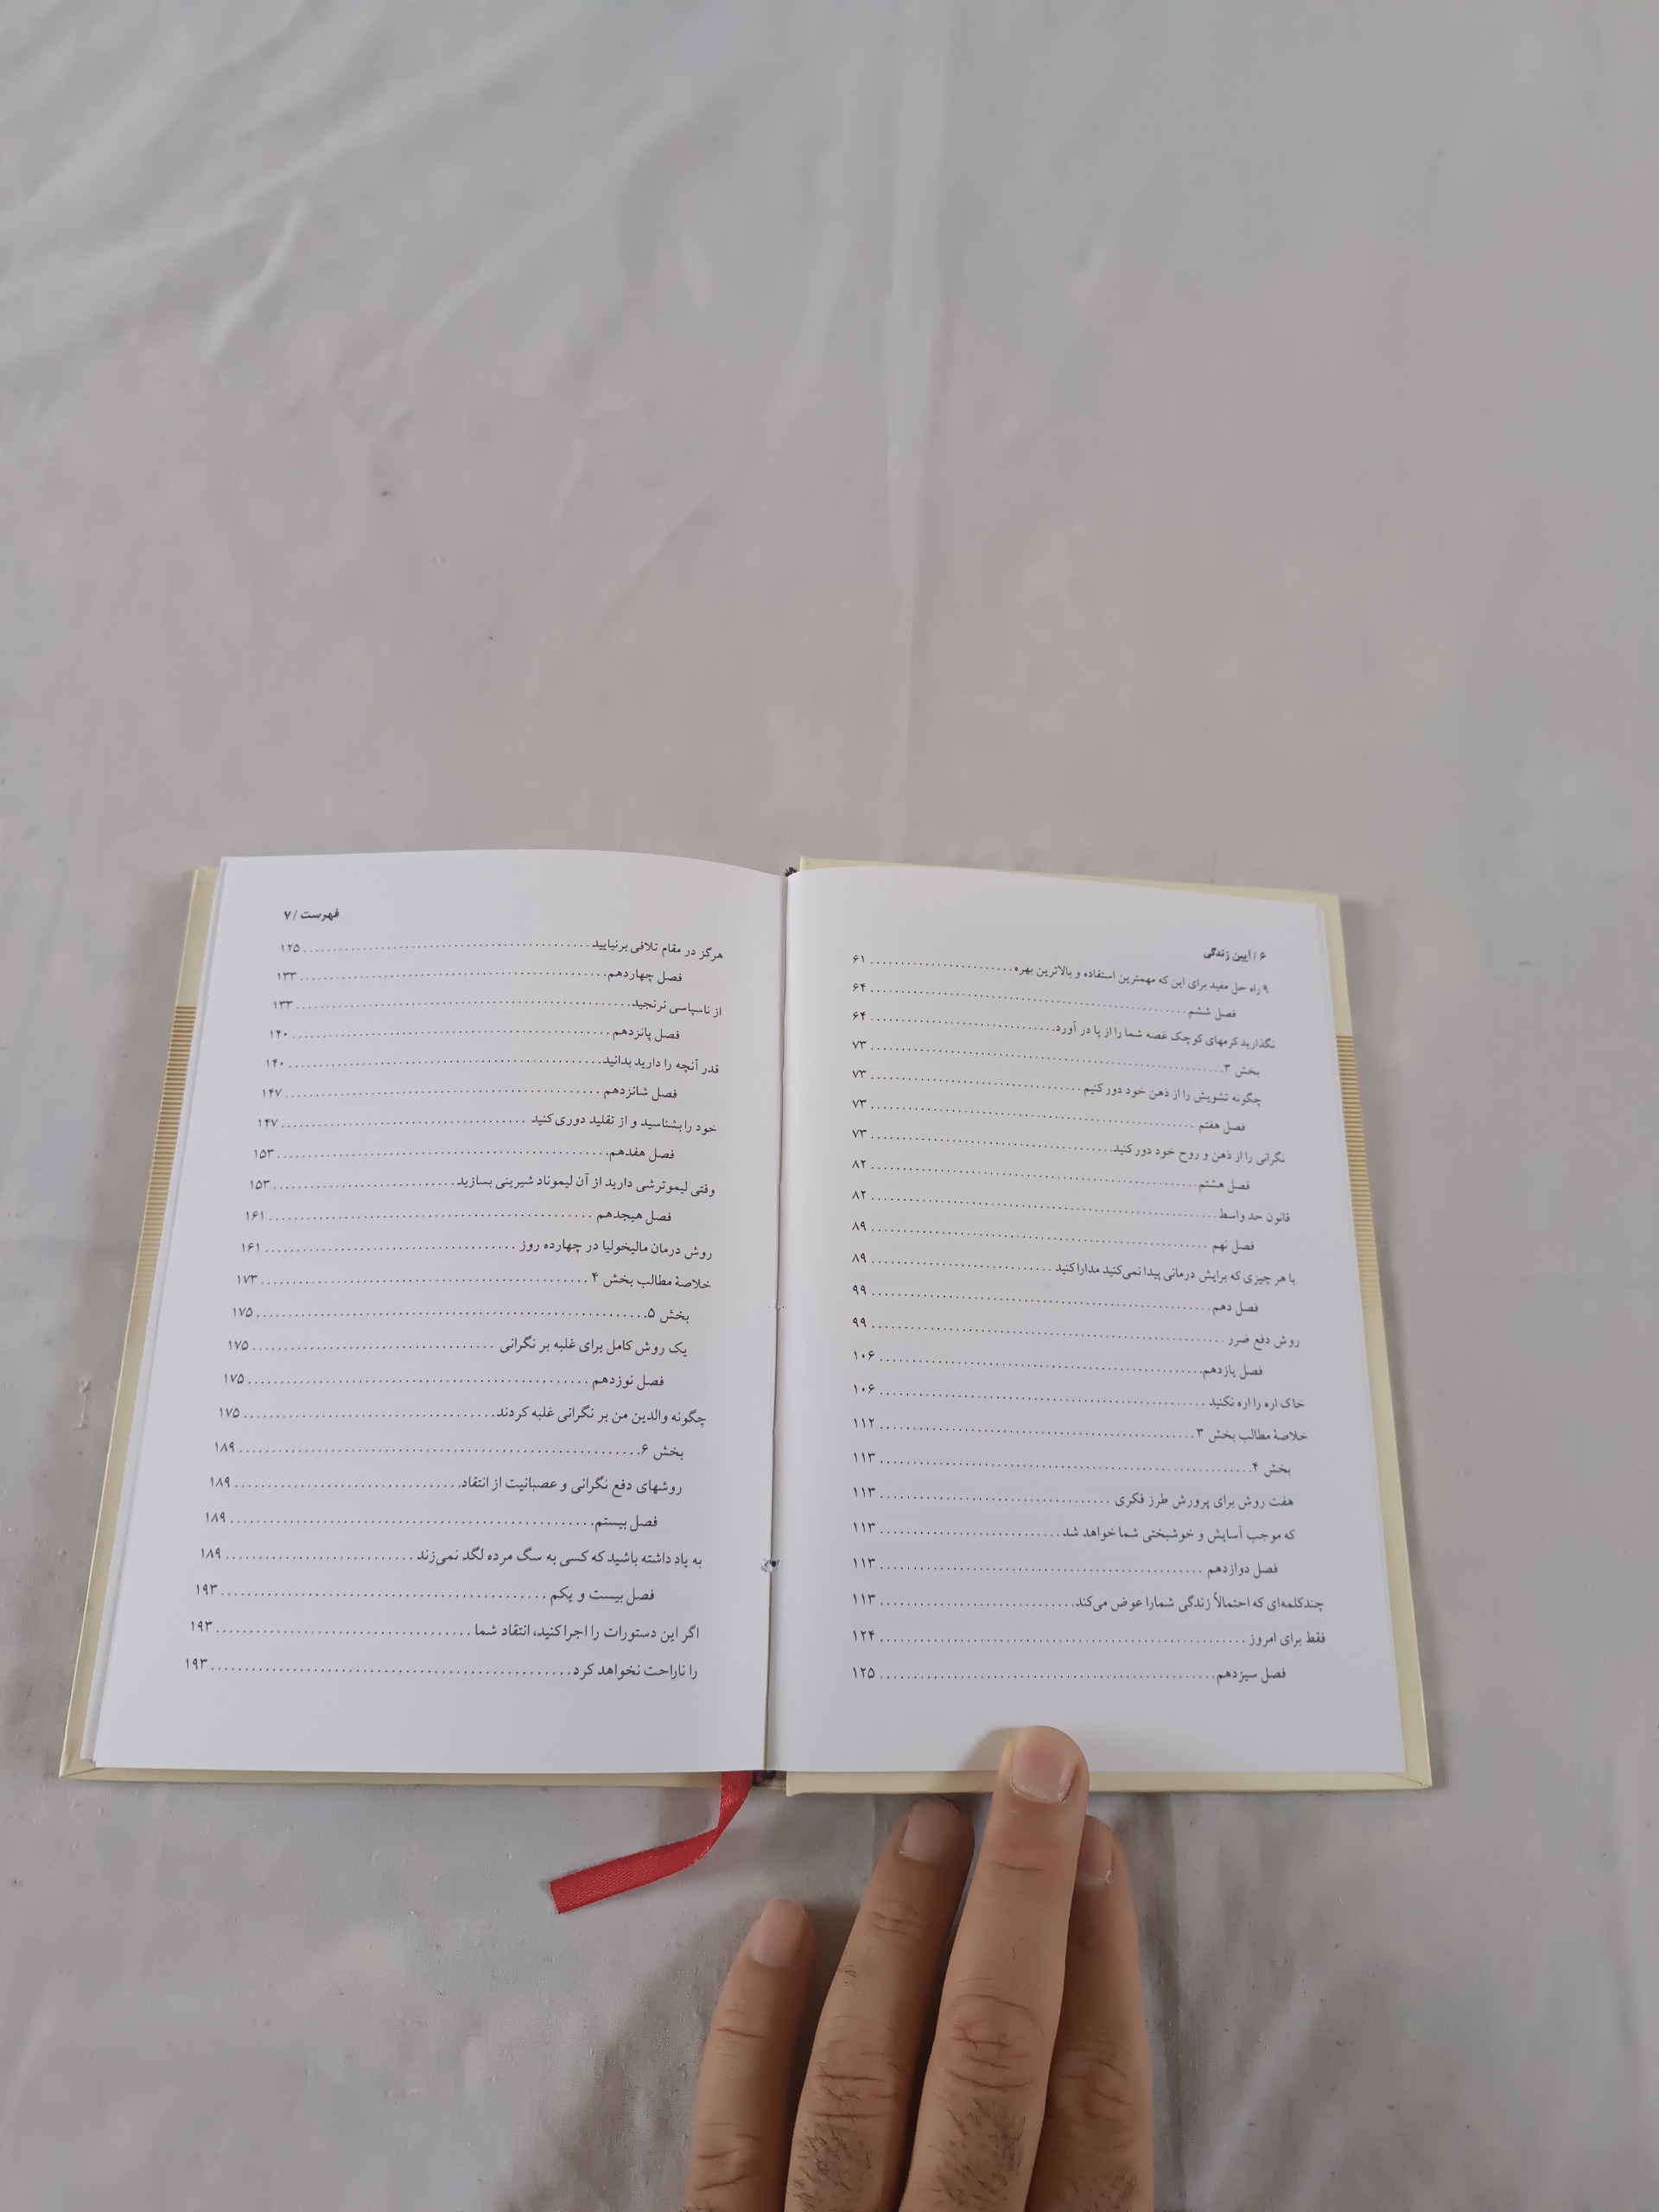 ۶ / آیین زندگی
۹ راه حل مفید برای این که مهمترین استفاده و بالاترین بهره ........ ۶۱
فصل ششم ........ ۶۴
نگذارید کرمهای کوچک غصه شما را از پا در آورد ........ ۶۴
بخش ۳ ........ ۷۳
چگونه تشویش را از ذهن خود دور کنیم ........ ۷۳
فصل هفتم ........ ۷۳
نگرانی را از ذهن و روح خود دور کنید ........ ۷۳
فصل هشتم ........ ۸۲
قانون حد واسط ........ ۸۲
فصل نهم ........ ۸۹
با هر چیزی که برایش درمانی پیدا نمی‌کنید مدارا کنید ........ ۸۹
فصل دهم ........ ۹۹
روش دفع ضرر ........ ۹۹
فصل یازدهم ........ ۱۰۶
خاک اره را اره نکنید ........ ۱۰۶
خلاصهٔ مطالب بخش ۳ ........ ۱۱۲
بخش ۴ ........ ۱۱۳
هفت روش برای پرورش طرز فکری ........ ۱۱۳
که موجب آسایش و خوشبختی شما خواهد شد ........ ۱۱۳
فصل دوازدهم ........ ۱۱۳
چند کلمه‌ای که احتمالاً زندگی شما را عوض می‌کند ........ ۱۱۳
فقط برای امروز ........ ۱۲۴
فصل سیزدهم ........ ۱۲۵
فهرست / ۷
هرگز در مقام تلافی برنیایید ........ ۱۲۵
فصل چهاردهم ........ ۱۳۳
از ناسپاسی نرنجید ........ ۱۳۳
فصل پانزدهم ........ ۱۴۰
قدر آنچه را دارید بدانید ........ ۱۴۰
فصل شانزدهم ........ ۱۴۷
خود را بشناسید و از تقلید دوری کنید ........ ۱۴۷
فصل هفدهم ........ ۱۵۳
وقتی لیموترشی دارید از آن لیموناد شیرینی بسازید ........ ۱۵۳
فصل هیجدهم ........ ۱۶۱
روش درمان مالیخولیا در چهارده روز ........ ۱۶۱
خلاصهٔ مطالب بخش ۴ ........ ۱۷۳
بخش ۵ ........ ۱۷۵
یک روش کامل برای غلبه بر نگرانی ........ ۱۷۵
فصل نوزدهم ........ ۱۷۵
چگونه والدین من بر نگرانی غلبه کردند ........ ۱۷۵
بخش ۶ ........ ۱۸۹
روشهای دفع نگرانی و عصبانیت از انتقاد ........ ۱۸۹
فصل بیستم ........ ۱۸۹
به یاد داشته باشید که کسی به سگ مرده لگد نمی‌زند ........ ۱۸۹
فصل بیست و یکم ........ ۱۹۳
اگر این دستورات را اجرا کنید، انتقاد شما ........ ۱۹۳
را ناراحت نخواهد کرد ........ ۱۹۳